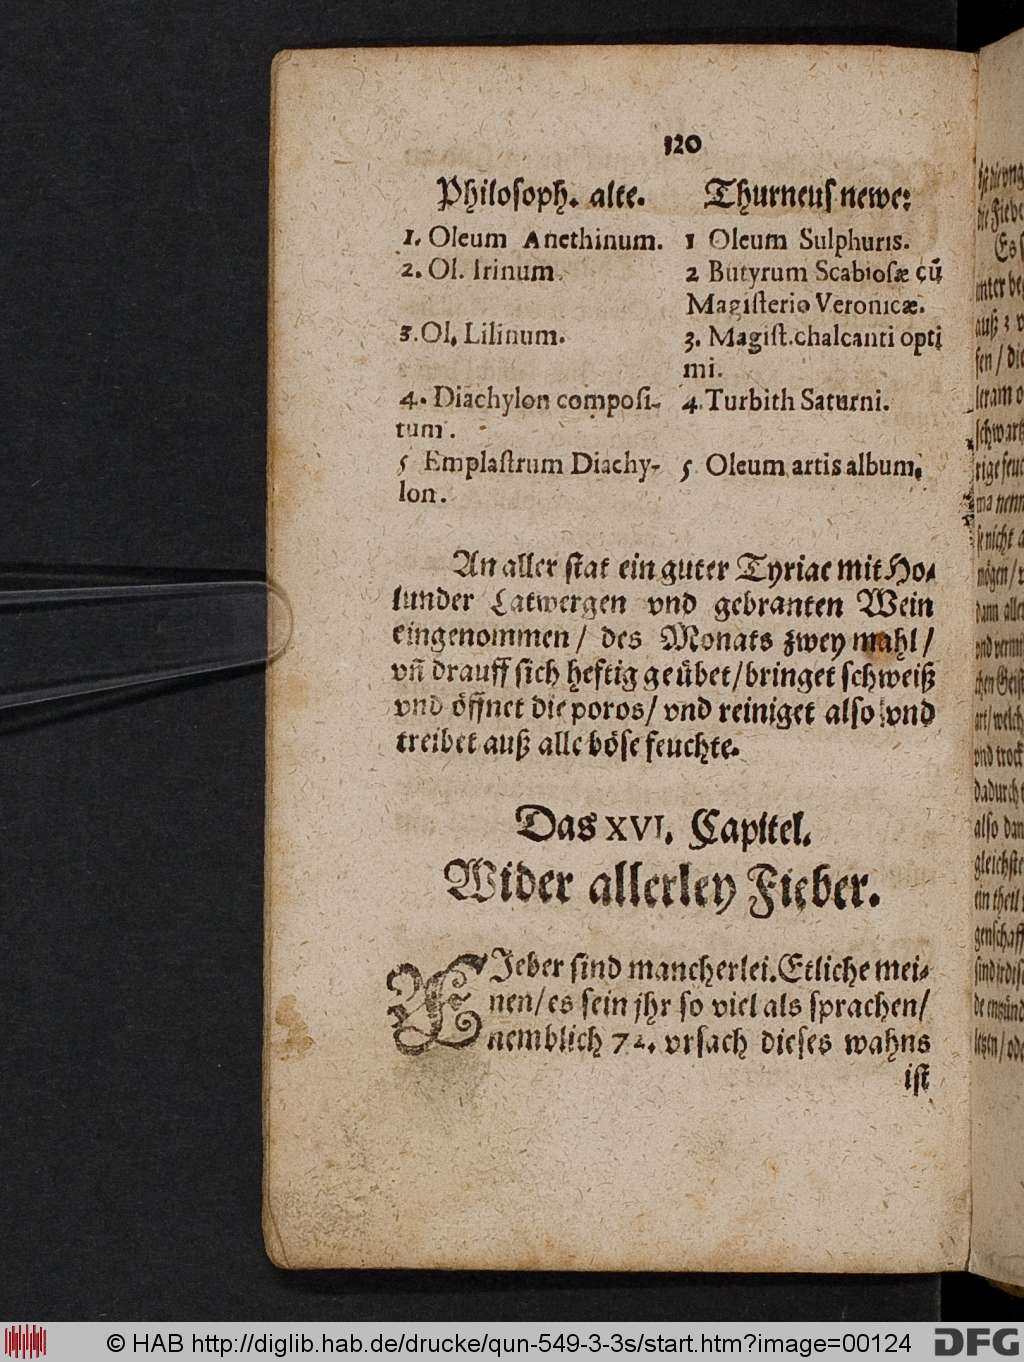 120
Philosoph. alte.
1. Oleum Anethinum.
2. Ol. Irinum.
3. Ol. Lilinum.
4. Diachylon composi-
tum.
5 Emplastrum Diachy-
lon.
Thurneus newe:
1 Oleum Sulphuris.
2 Butyrum Scabiosæ cũ
Magisterio Veronicæ.
3. Magist. chalcanti opti
mi.
4. Turbith Saturni.
5 Oleum artis album.
An aller stat ein guter Tyriac mit Ho-
lunder Latwergen vnd gebranten Wein
eingenommen / des Monats zwey mahl /
vñ drauff sich heftig geübet / bringet schweiß
vnd öffnet die poros / vnd reiniget also vnd
treibet auß alle böse feuchte.
Das XVI. Capitel.
Wider allerley Fieber.
FIeber sind mancherlei. Etliche mei-
nen / es sein jhr so viel als sprachen /
nemblich 72. vrsach dieses wahns
ist
© HAB http://diglib.hab.de/drucke/qun-549-3-3s/start.htm?image=00124
DFG